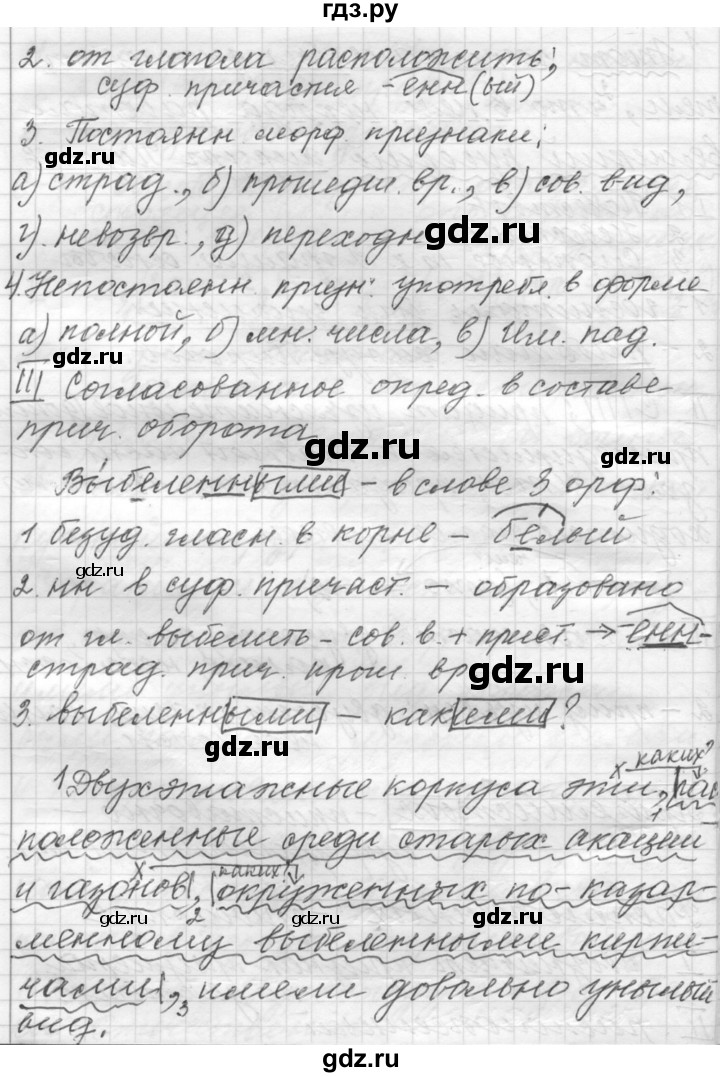 гдз.ру
2. от глагола расположить;
суф. причастия -енн(ый)
3. Постоянн морф. признаки:
gdz.ru
а) страд., б) прошедш. вр., в) сов. вид,
г). невозвр., д) переходн
gdz.ru
4. Непостоянн. призн: употребл. в форме
а) полной, б) мн. числа, в) Им. пад.
gdz.ru
III Согласованное опред. в составе
прич. оборота
gdz.ru
Выбеленными - в слове 3 орф:
1 безуд. гласн. в корне - белый
gdz.ru
2. нн в суф. причаст. - образовано
от гл. выбелить - сов. в. + прист. → -енн-
страд. прич. прош. вр
gdz.ru
3. выбеленными - какими?
gdz.ru
х каких?
1 Двухэтажные корпуса эти, рас
1
положенные среди старых акаций
х каких?
и газонов, окруженных по-казар-
2
gdz.ru gdz.ru
менному выбеленными кирпи-
чами, имели довольно унылый
3
вид.
gdz.ru
gdz.ru